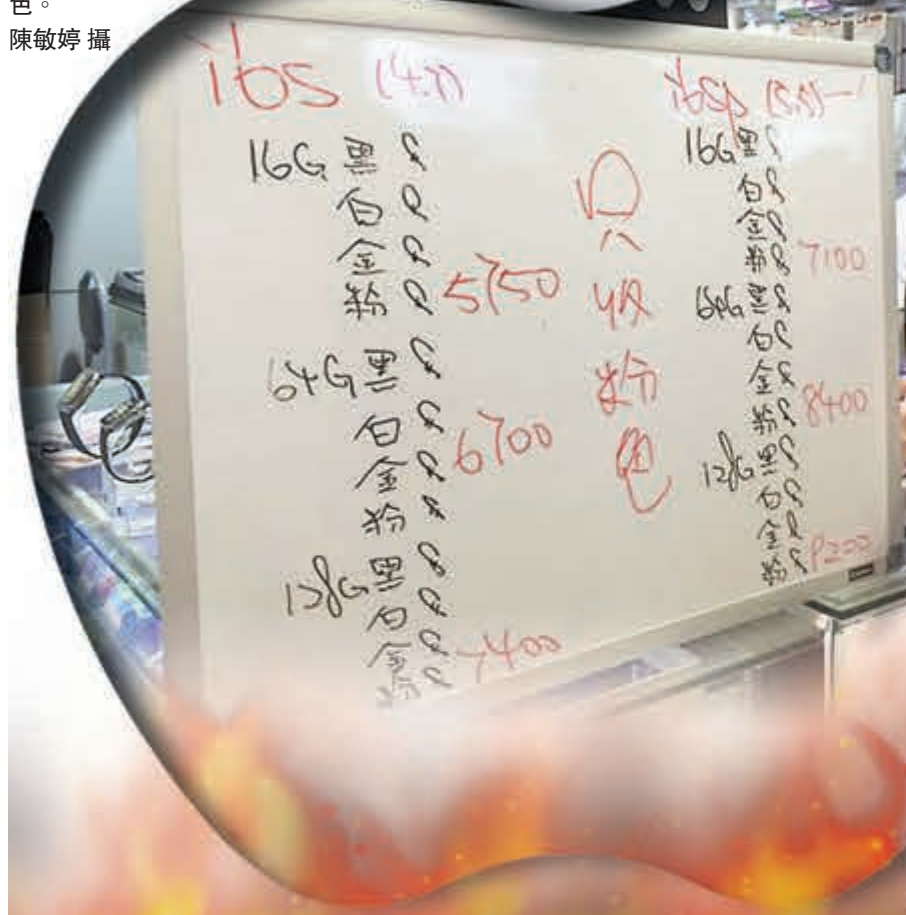 色。
陳敏婷 攝
i6s (4.7)
16G 黑
白
金
粉 5750
64G 黑
白
金 6700
粉
128G 黑
白
金 7400
粉
只
收
粉
色
i6sp (5.5)
16G 黑
白
金
粉 7100
64G 黑
白
金
粉 8400
128G 黑
白
金
粉 9200